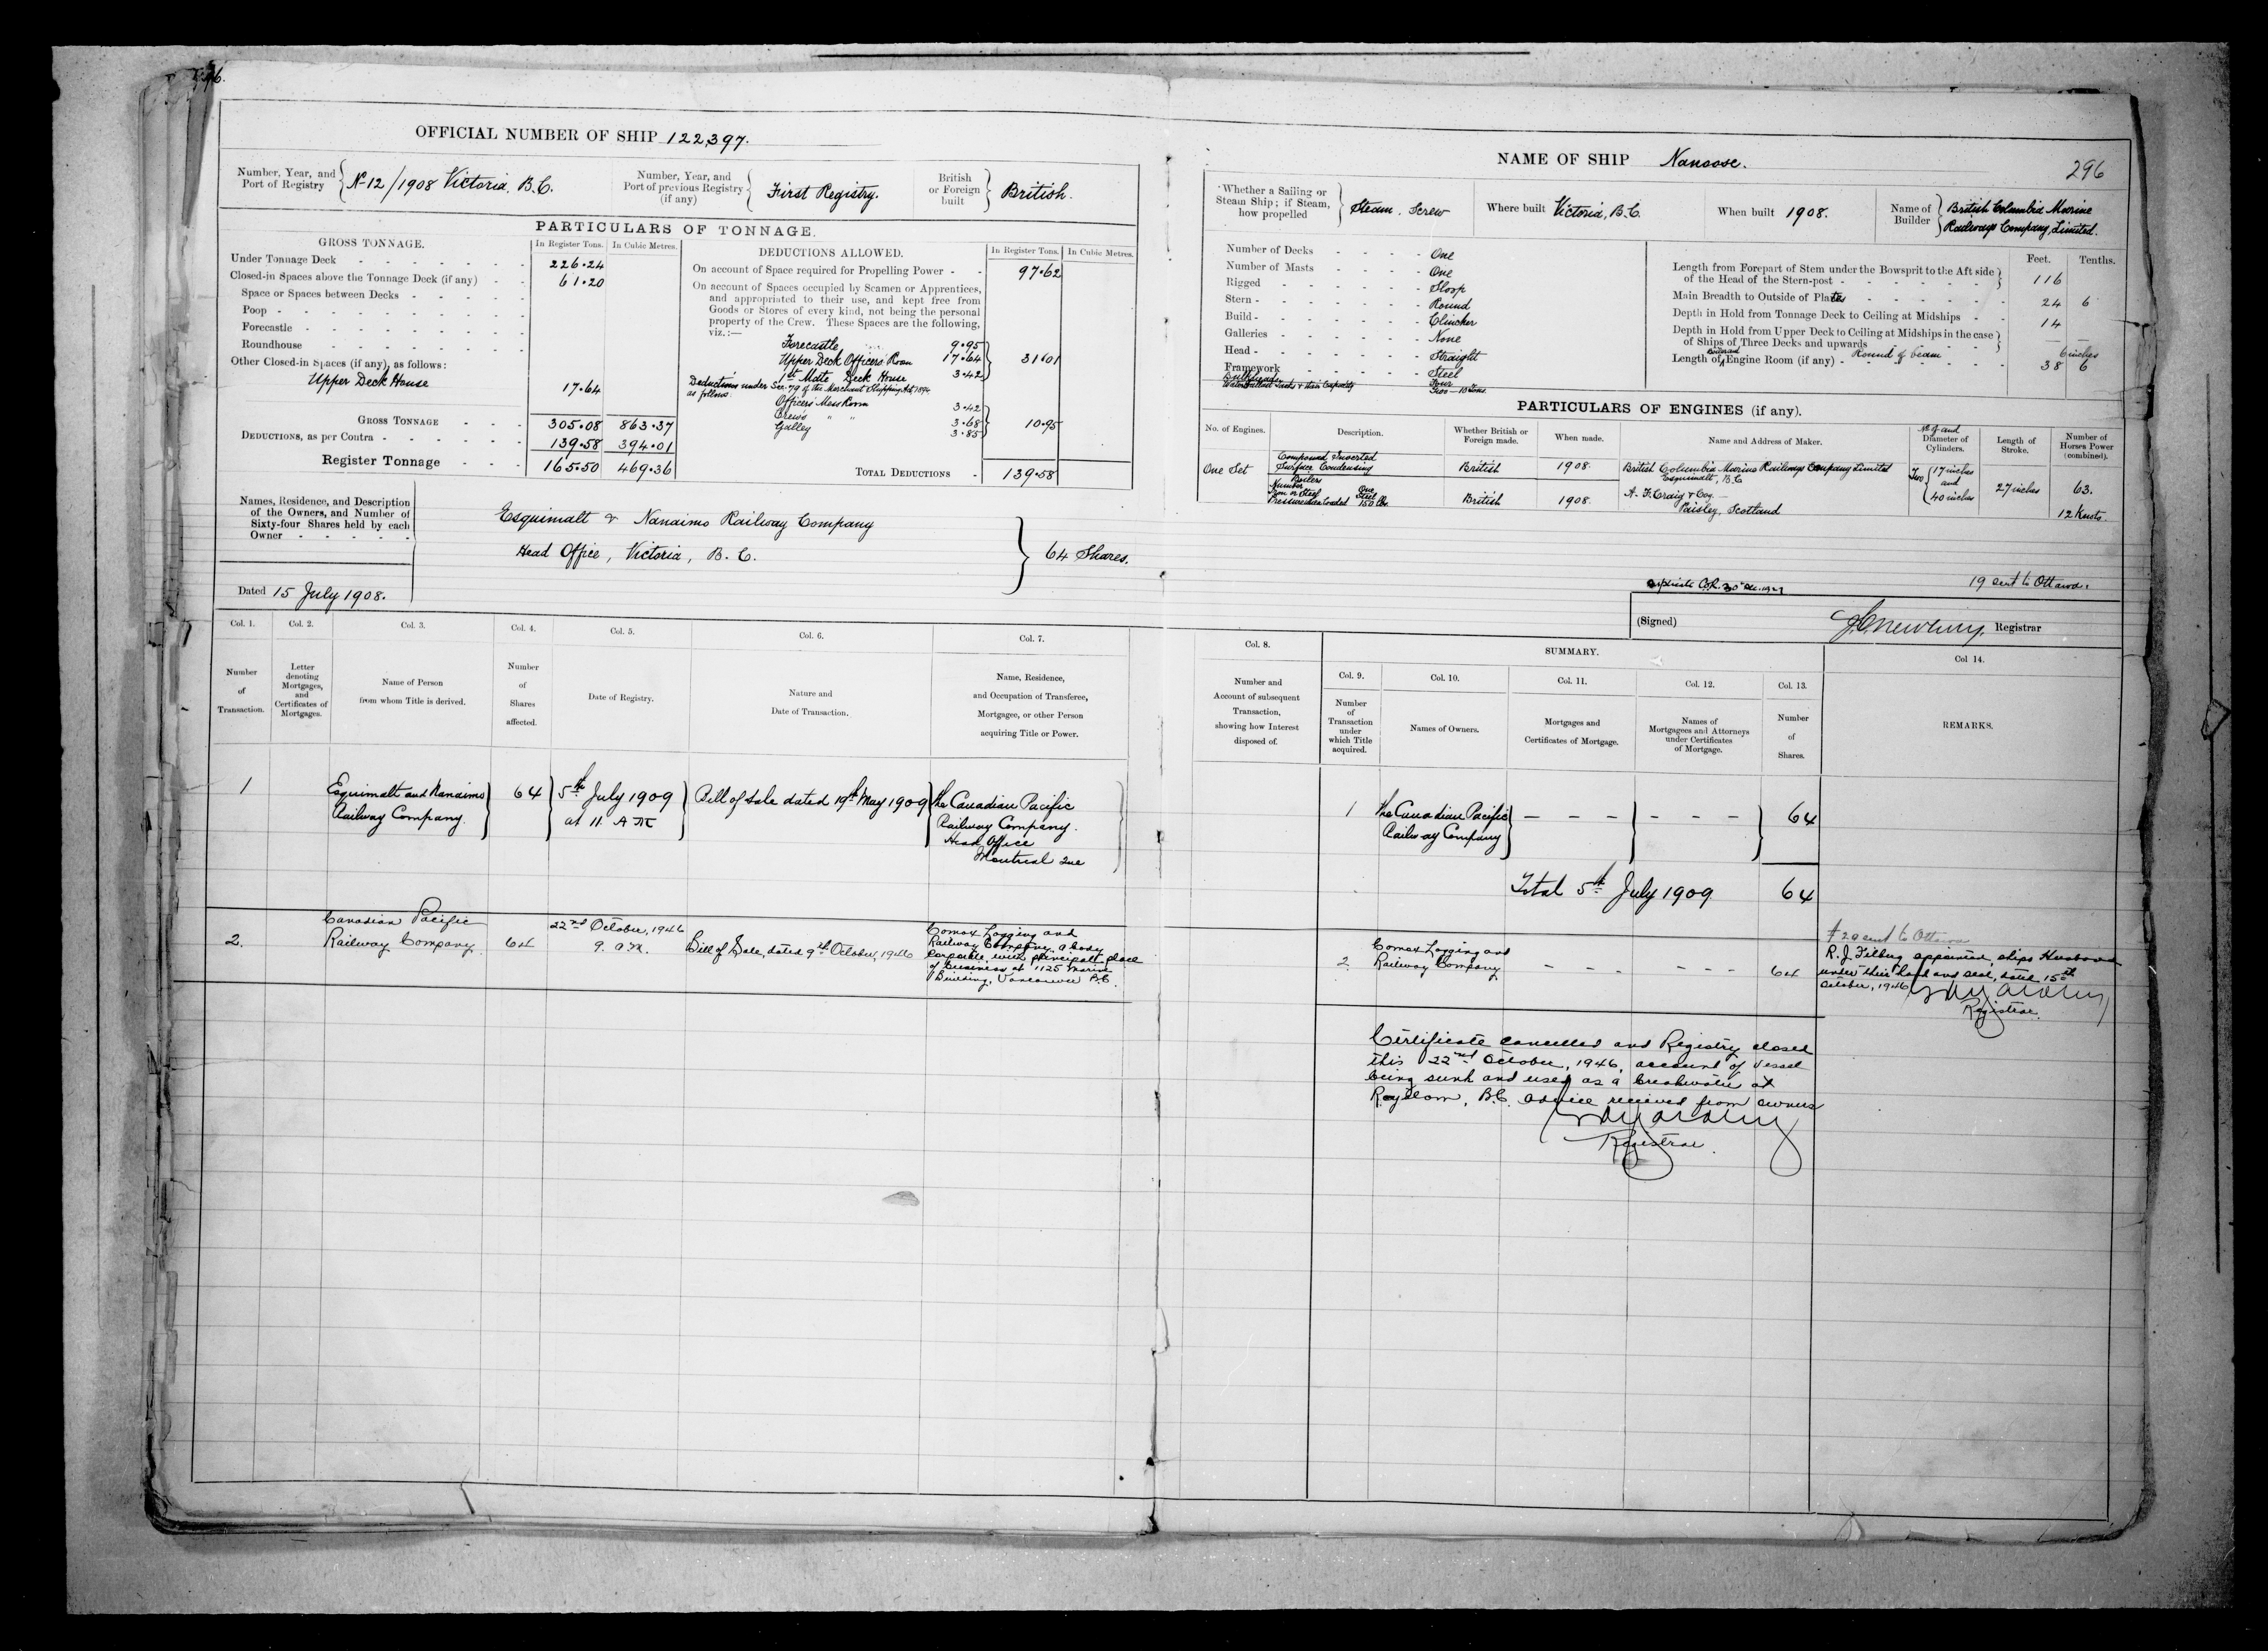 OFFICIAL NUMBER OF SHIP 122,397.
Number, Year, and Port of Registry
No 12/1908 Victoria, B.C.
Number, Year, and Port of previous Registry (if any)
First Registry.
British or Foreign built
British.
PARTICULARS OF TONNAGE.
GROSS TONNAGE.
In Register Tons.
In Cubic Metres.
Under Tonnage Deck 226.24
Closed-in Spaces above the Tonnage Deck (if any) 61.20
Space or Spaces between Decks
Poop
Forecastle
Roundhouse
Other Closed-in Spaces (if any), as follows:
Upper Deck House 17.64
GROSS TONNAGE 305.08 863.37
DEDUCTIONS, as per Contra 139.58 394.01
Register Tonnage 165.50 469.36
DEDUCTIONS ALLOWED.
In Register Tons.
In Cubic Metres.
On account of Space required for Propelling Power 97.62
On account of Spaces occupied by Seamen or Apprentices,
and appropriated to their use, and kept free from
Goods or Stores of every kind, not being the personal
property of the Crew. These Spaces are the following,
viz.:—
Forecastle 9.95
Upper Deck Officers' Room 17.64 31.01
1st Mate Deck House 3.42
Deductions under Sec. 79 of the Merchant Shipping Act, 1894
as follows:
Officers' Mess Room 3.42
Crew's " " 3.68 10.95
Galley 3.85
TOTAL DEDUCTIONS 139.58
Names, Residence, and Description
of the Owners, and Number of
Sixty-four Shares held by each
Owner
Esquimalt & Nanaimo Railway Company
Head Office, Victoria, B.C.
64 Shares.
Dated 15 July 1908.
Col. 1.
Number of Transaction.
Col. 2.
Letter denoting Mortgages, and Certificates of Mortgages.
Col. 3.
Name of Person from whom Title is derived.
Col. 4.
Number of Shares affected.
Col. 5.
Date of Registry.
Col. 6.
Nature and Date of Transaction.
Col. 7.
Name, Residence, and Occupation of Transferee, Mortgagee, or other Person acquiring Title or Power.
1
Esquimalt and Nanaimo
Railway Company.
64
5th July 1909
at 11 AM
Bill of Sale dated 19th May 1909
The Canadian Pacific
Railway Company.
Head Office
Montreal Que
2.
Canadian Pacific
Railway Company.
64
22nd October, 1946
9. a.m.
Bill of Sale, dated 9th October, 1946
Comox Logging and
Railway Company, a body
corporate, with principal place
of business at 1125 Marine
Building, Vancouver B.C.
NAME OF SHIP Nanoose.
296
Whether a Sailing or Steam Ship; if Steam, how propelled
Steam, Screw
Where built Victoria, B.C.
When built 1908.
Name of Builder
British Columbia Marine
Railways Company, Limited.
Number of Decks One
Number of Masts One
Rigged Sloop
Stern Round
Build Clincher
Galleries None
Head Straight
Framework Steel
Bulkheads Four
Water Ballast Tanks & their Capacity Two — 10 Tons
Feet. Tenths.
Length from Forepart of Stem under the Bowsprit to the Aft side
of the Head of the Stern-post 116
Main Breadth to Outside of Plates 24 6
Depth in Hold from Tonnage Deck to Ceiling at Midships 14
Depth in Hold from Upper Deck to Ceiling at Midships in the case
of Ships of Three Decks and upwards
Round of beam 6 inches
Length of Engine Room (if any) 38 6
PARTICULARS OF ENGINES (if any).
No. of Engines.
Description.
Whether British or Foreign made.
When made.
Name and Address of Maker.
No of and Diameter of Cylinders.
Length of Stroke.
Number of Horses Power (combined).
One Set
Compound Inverted
Surface Condensing
British
1908.
British Columbia Marine Railways Company Limited
Esquimalt, B.C
Two
17 inches
and
40 inches
27 inches
63.
Boilers
Number One
Iron or Steel Steel
Pressure when Loaded 150 lbs.
British
1908.
A. F. Craig & Coy.
Paisley, Scotland
12 Knots.
19 sent to Ottawa.
(Signed)
Registrar
Col. 8.
Number and Account of subsequent Transaction, showing how Interest disposed of.
SUMMARY.
Col. 9.
Number of Transaction under which Title acquired.
Col. 10.
Names of Owners.
Col. 11.
Mortgages and Certificates of Mortgage.
Col. 12.
Names of Mortgagees and Attorneys under Certificates of Mortgage.
Col. 13.
Number of Shares.
Col 14.
REMARKS.
1
The Canadian Pacific
Railway Company
— — —
— — —
64
Total 5th July 1909
64
2.
Comox Logging and
Railway Company
— — —
— — —
64
# 20 sent to Ottawa
R. J. Filberg appointed ships Husband
under their hand and seal, dated 15th
October, 1946
Registrar.
Certificate cancelled and Registry closed
this 22nd October, 1946, account of vessel
being sunk and used as a breakwater at
Royston, B.C. advice received from owners
Registrar.